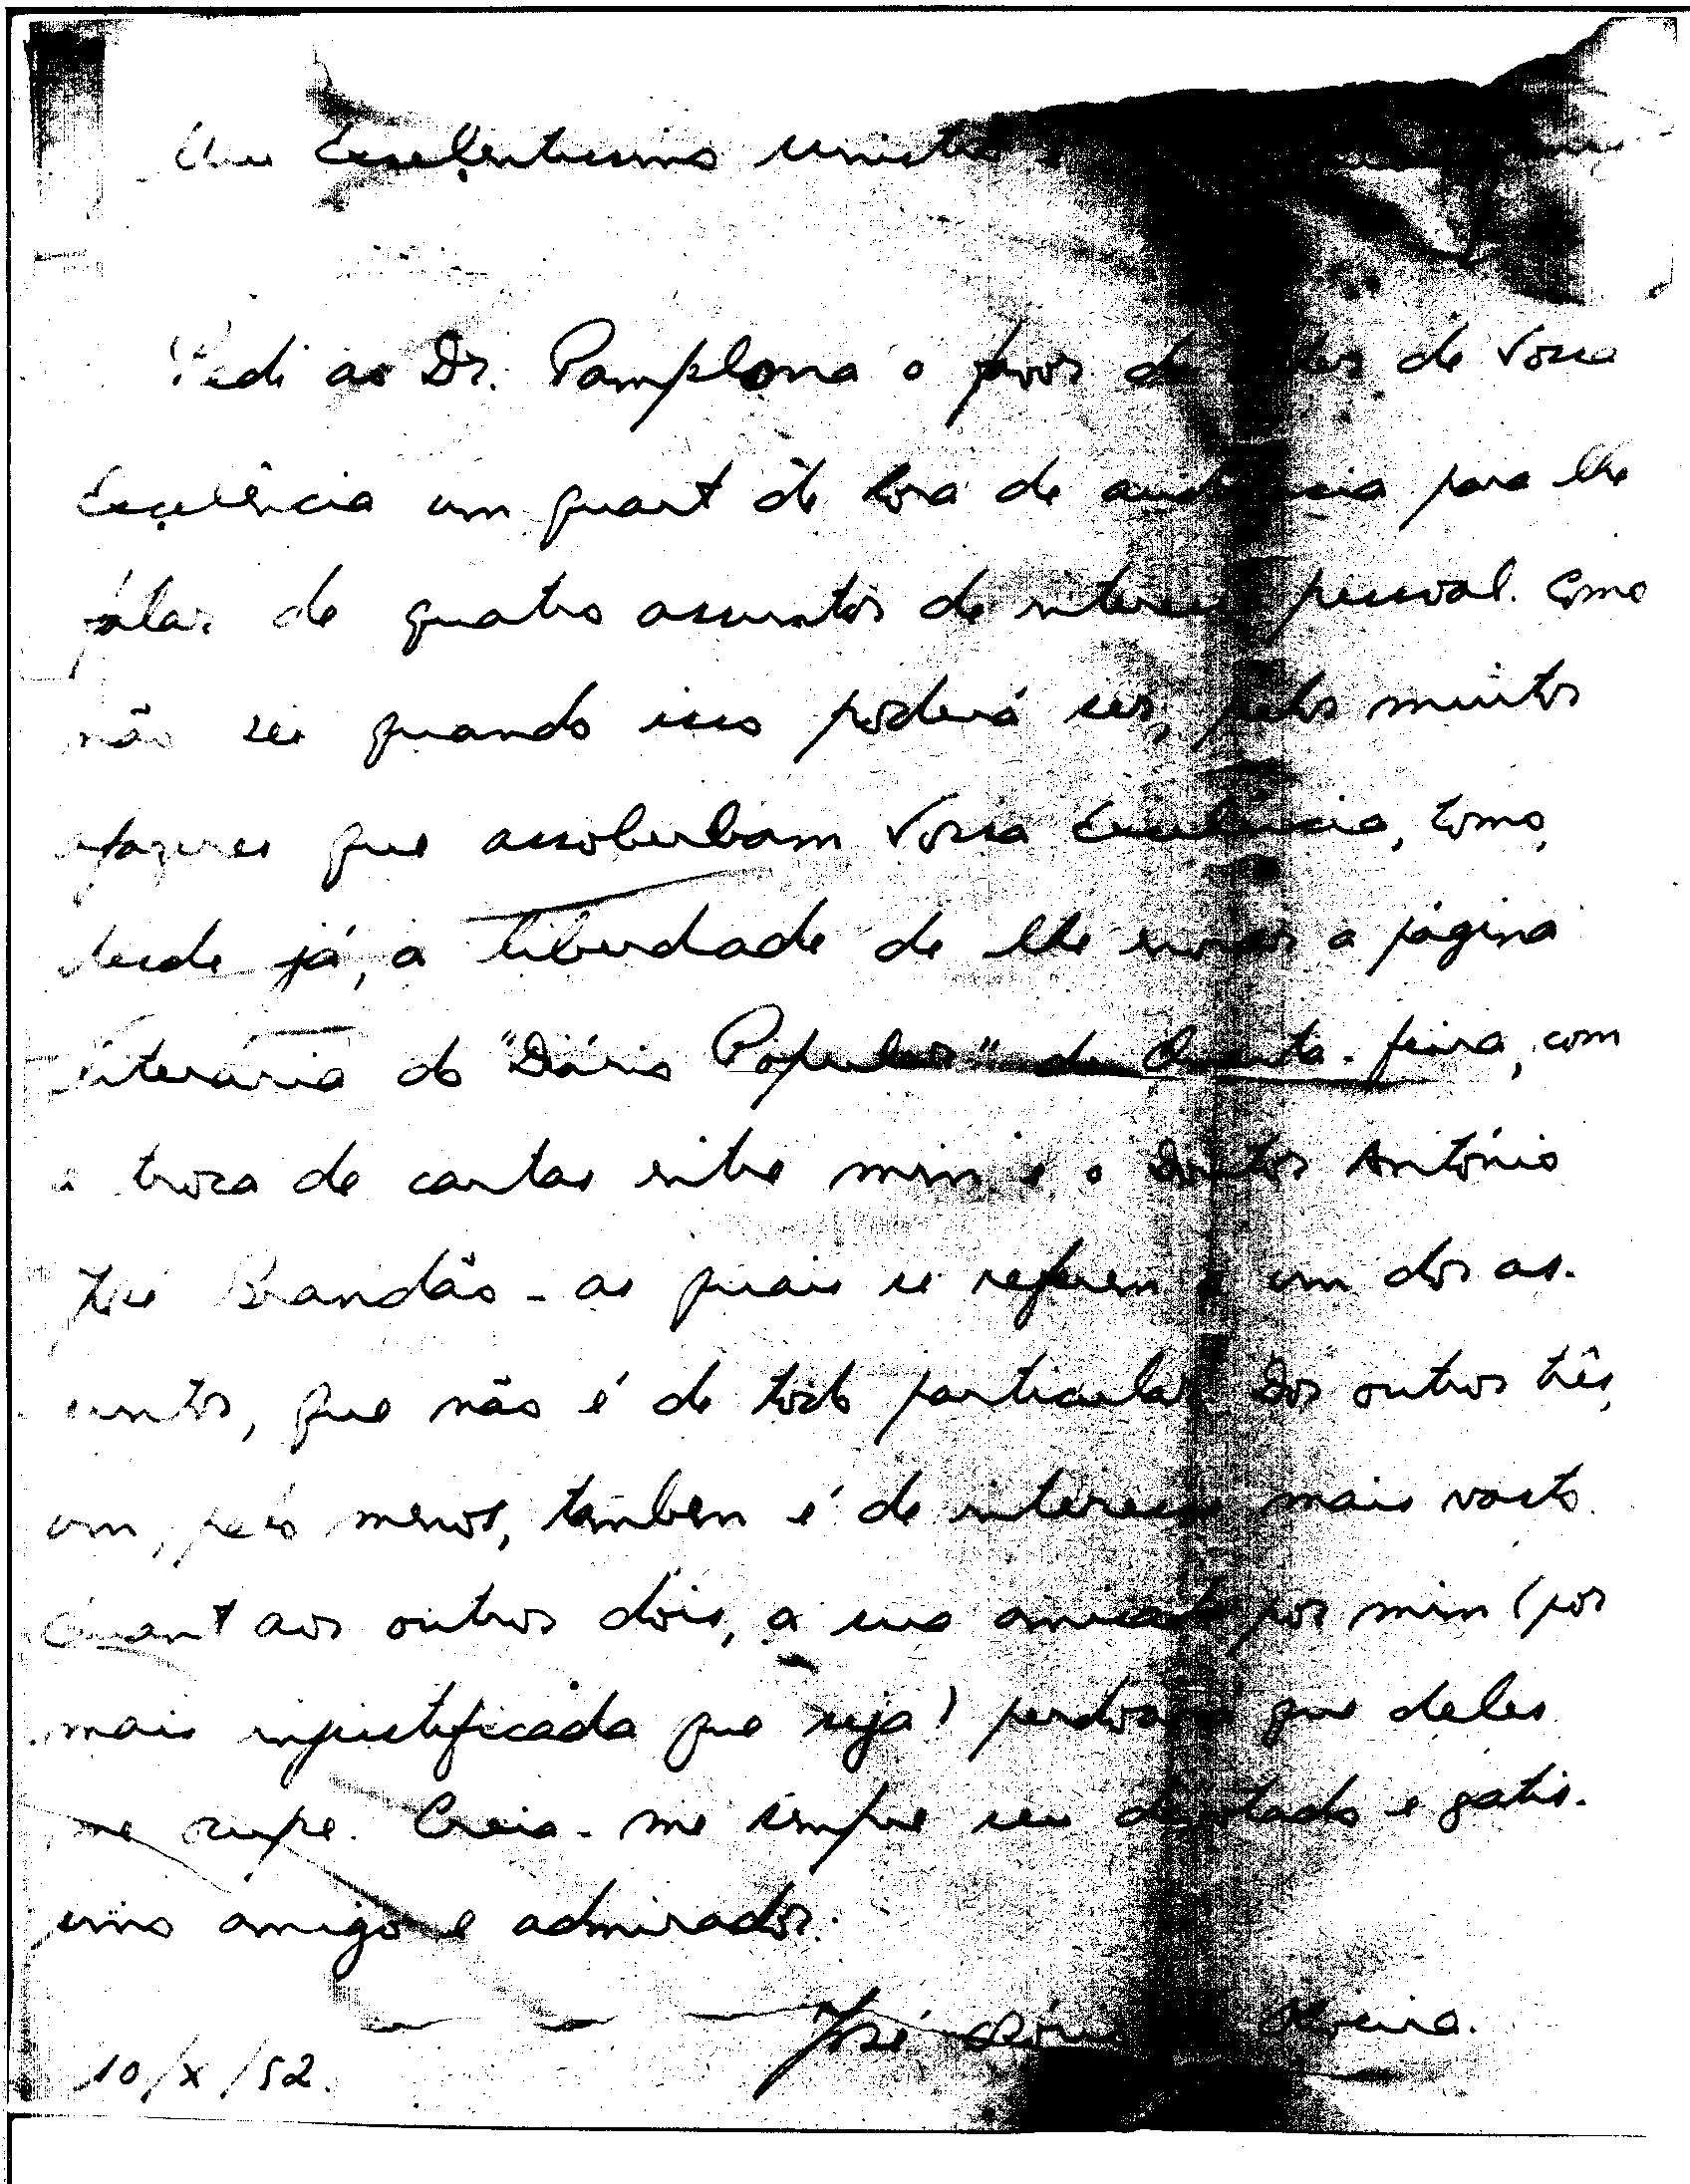 Meu Excelentíssimo
Pedi ao Dr. Pamplona o favor de obter de Vossa
Excelência um quarto de hora de audiência para lhe
falar de quatro assuntos de interesse pessoal. Como
não sei quando isso poderá ser, pelos muitos
afazeres que assoberbam Vossa Excelência, tomo,
desde já, a liberdade de lhe enviar a página
literária do "Diário Popular" de Quarta-feira, com
a troca de cartas entre mim e o Doutor António
José Brandão - as quais se referem a um dos as-
suntos, que não é de todo particular. Dos outros três,
um, pelo menos, tambem é de interesse mais vasto.
Quanto aos outros dois, a sua amizade por mim (por
mais injustificada que seja) perdoará que deles
me ocupe. Creia-me sempre seu devotado e gratís-
simo amigo e admirador.
José Oliveira.
10/X/52.